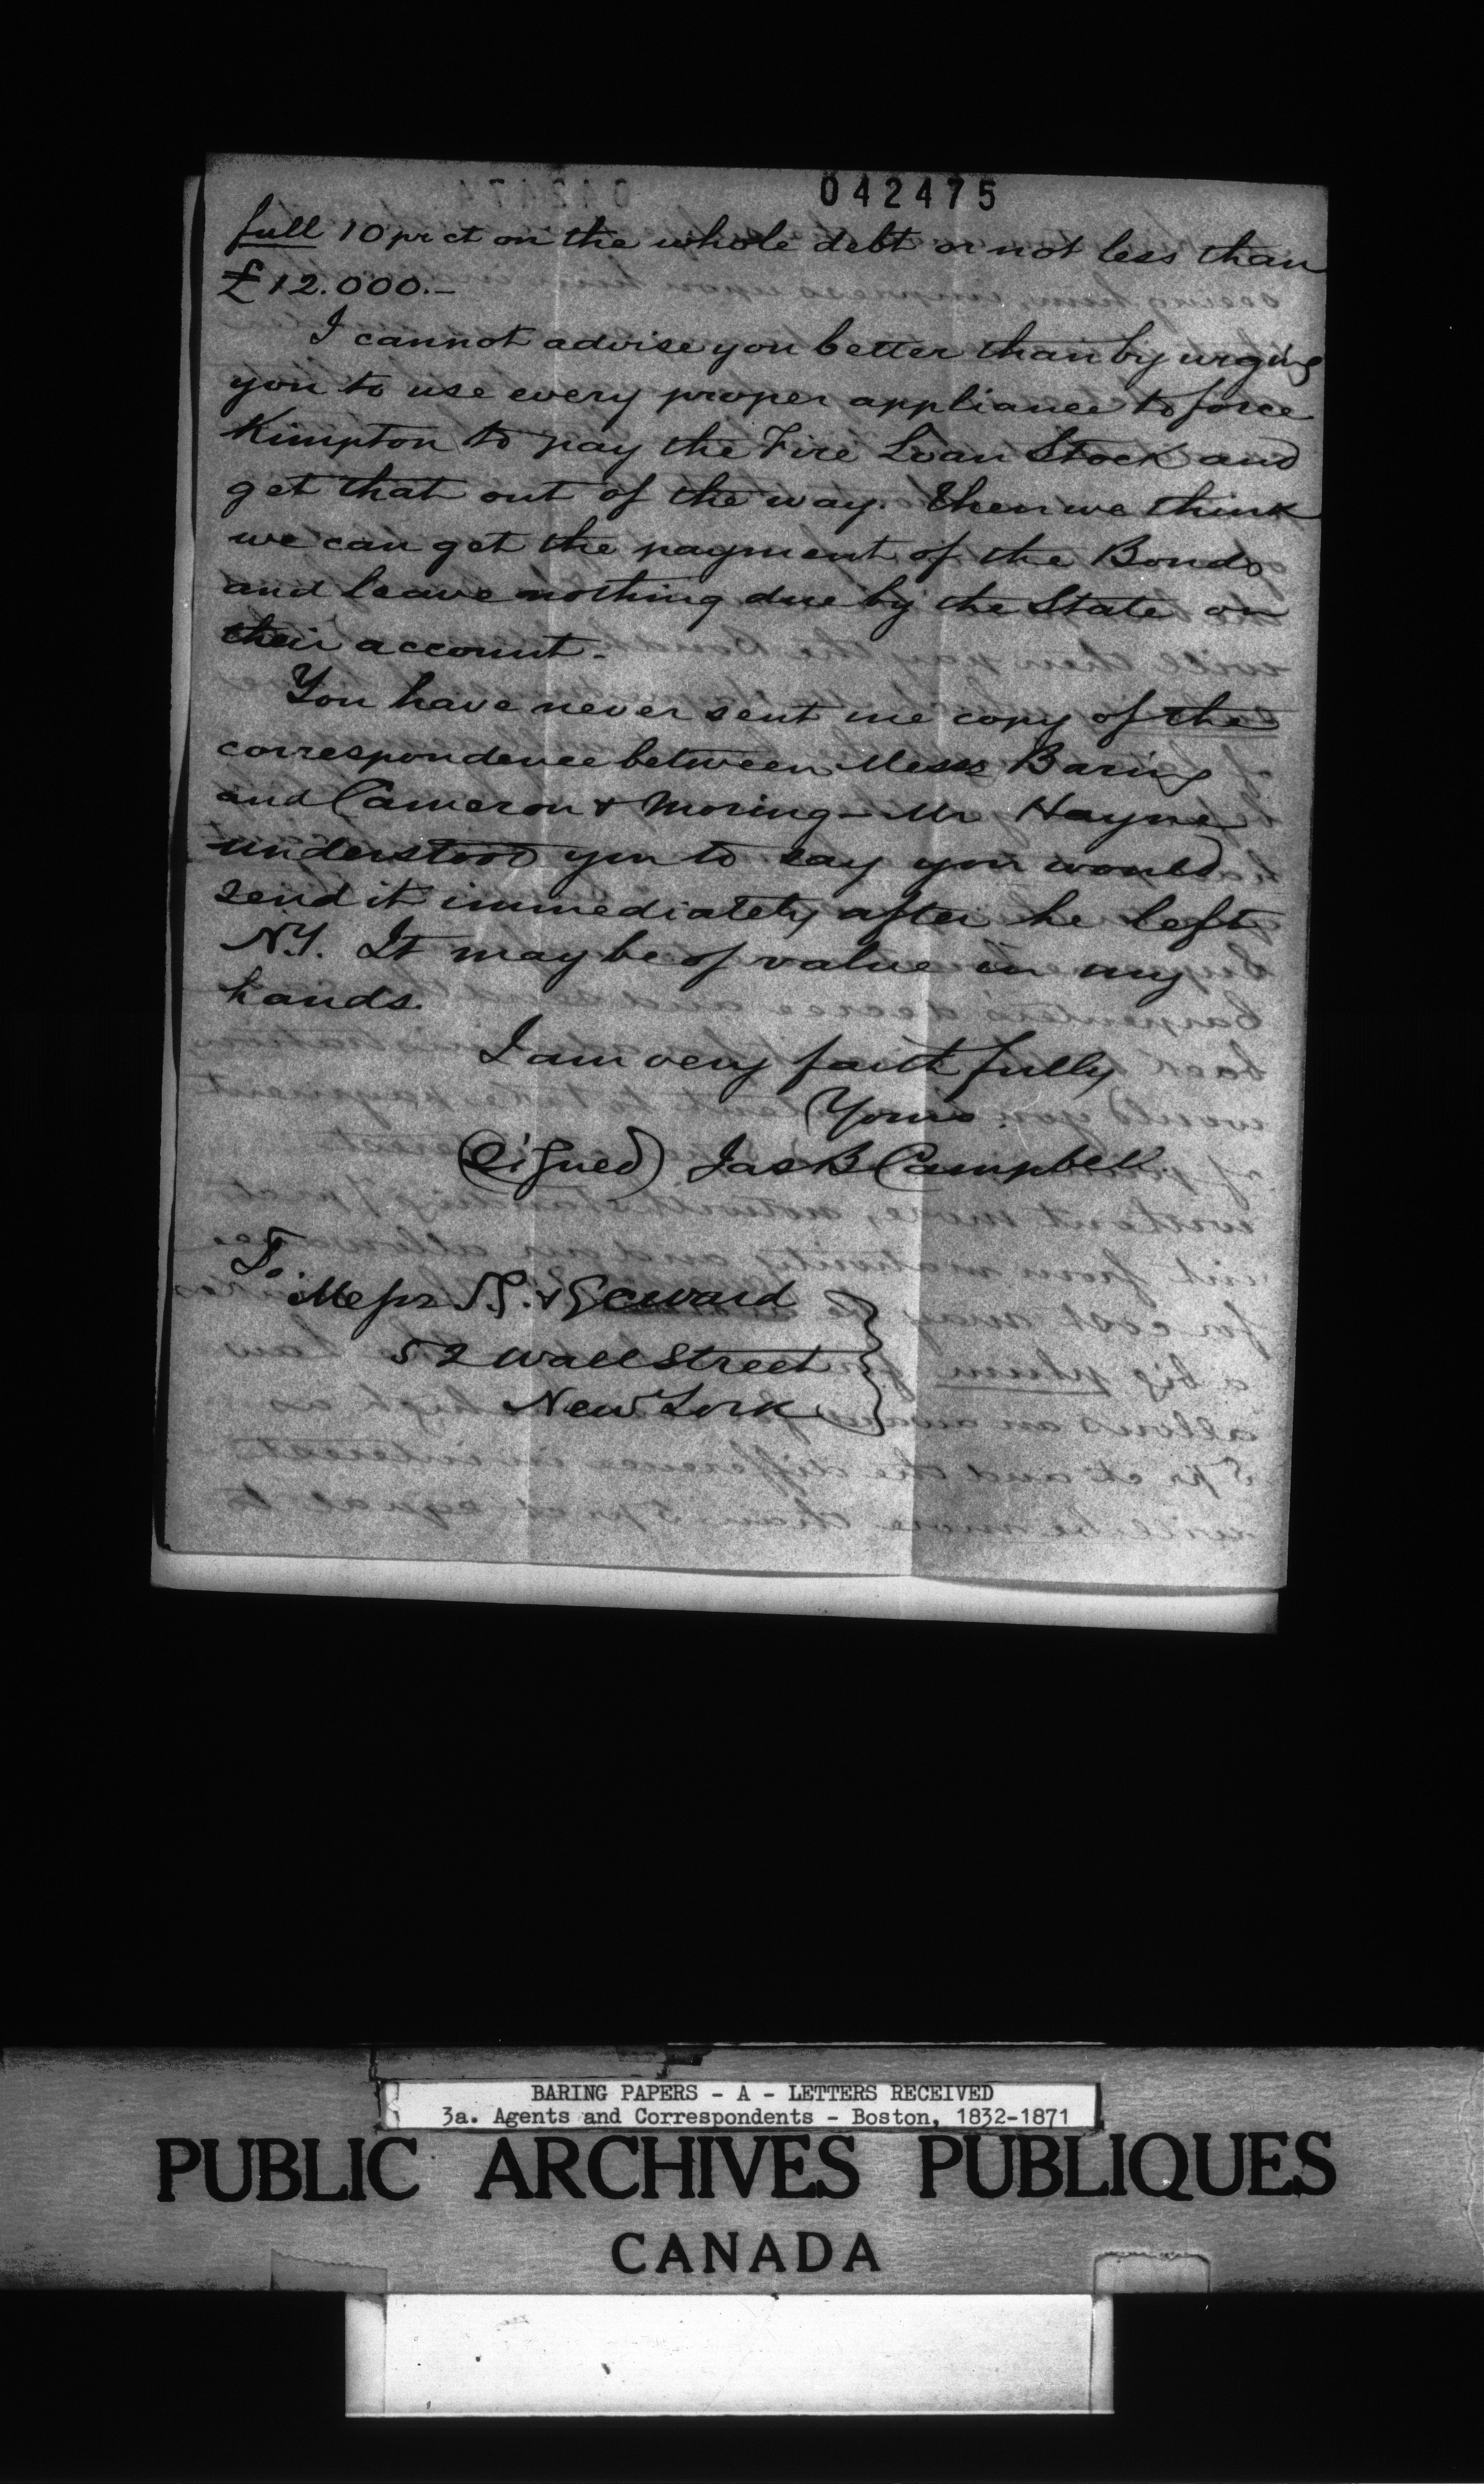 042475
full 10 pr ct on the whole debt or not less than
£12.000.-
I cannot advise you better than by urging
you to use every proper appliance to force
Kimpton to pay the Fire Loan Stock and
get that out of the way. Then we think
we can get the payment of the Bonds
and leave nothing due by the State on
their account.
You have never sent me copy of the
correspondence between Messrs Baring
and Cameron & Moring - Mr Hayne
understood you to say you would
send it immediately after he left
N.Y. It may be of value in my
hands.
I am very faithfully
Yours.
(Signed) Jas B Campbell.
To.
Messrs S. G. & G C Ward
52 Wall Street
New York
BARING PAPERS - A - LETTERS RECEIVED
3a. Agents and Correspondents - Boston, 1832-1871
PUBLIC ARCHIVES PUBLIQUES
CANADA